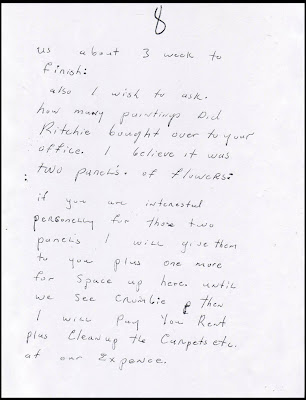 8
us about 3 week to
finish:
also I wish to ask.
how many paintings Did
Ritchie bought over to your
office. I believe it was
two panels. of flowers:
if you are interested
personelly for those two
panels I will give them
to you plus one more
for space up here. until
we see Crumbie & then
I will Pay You Rent
plus Cleanup the Carpets etc.
at our Expence.